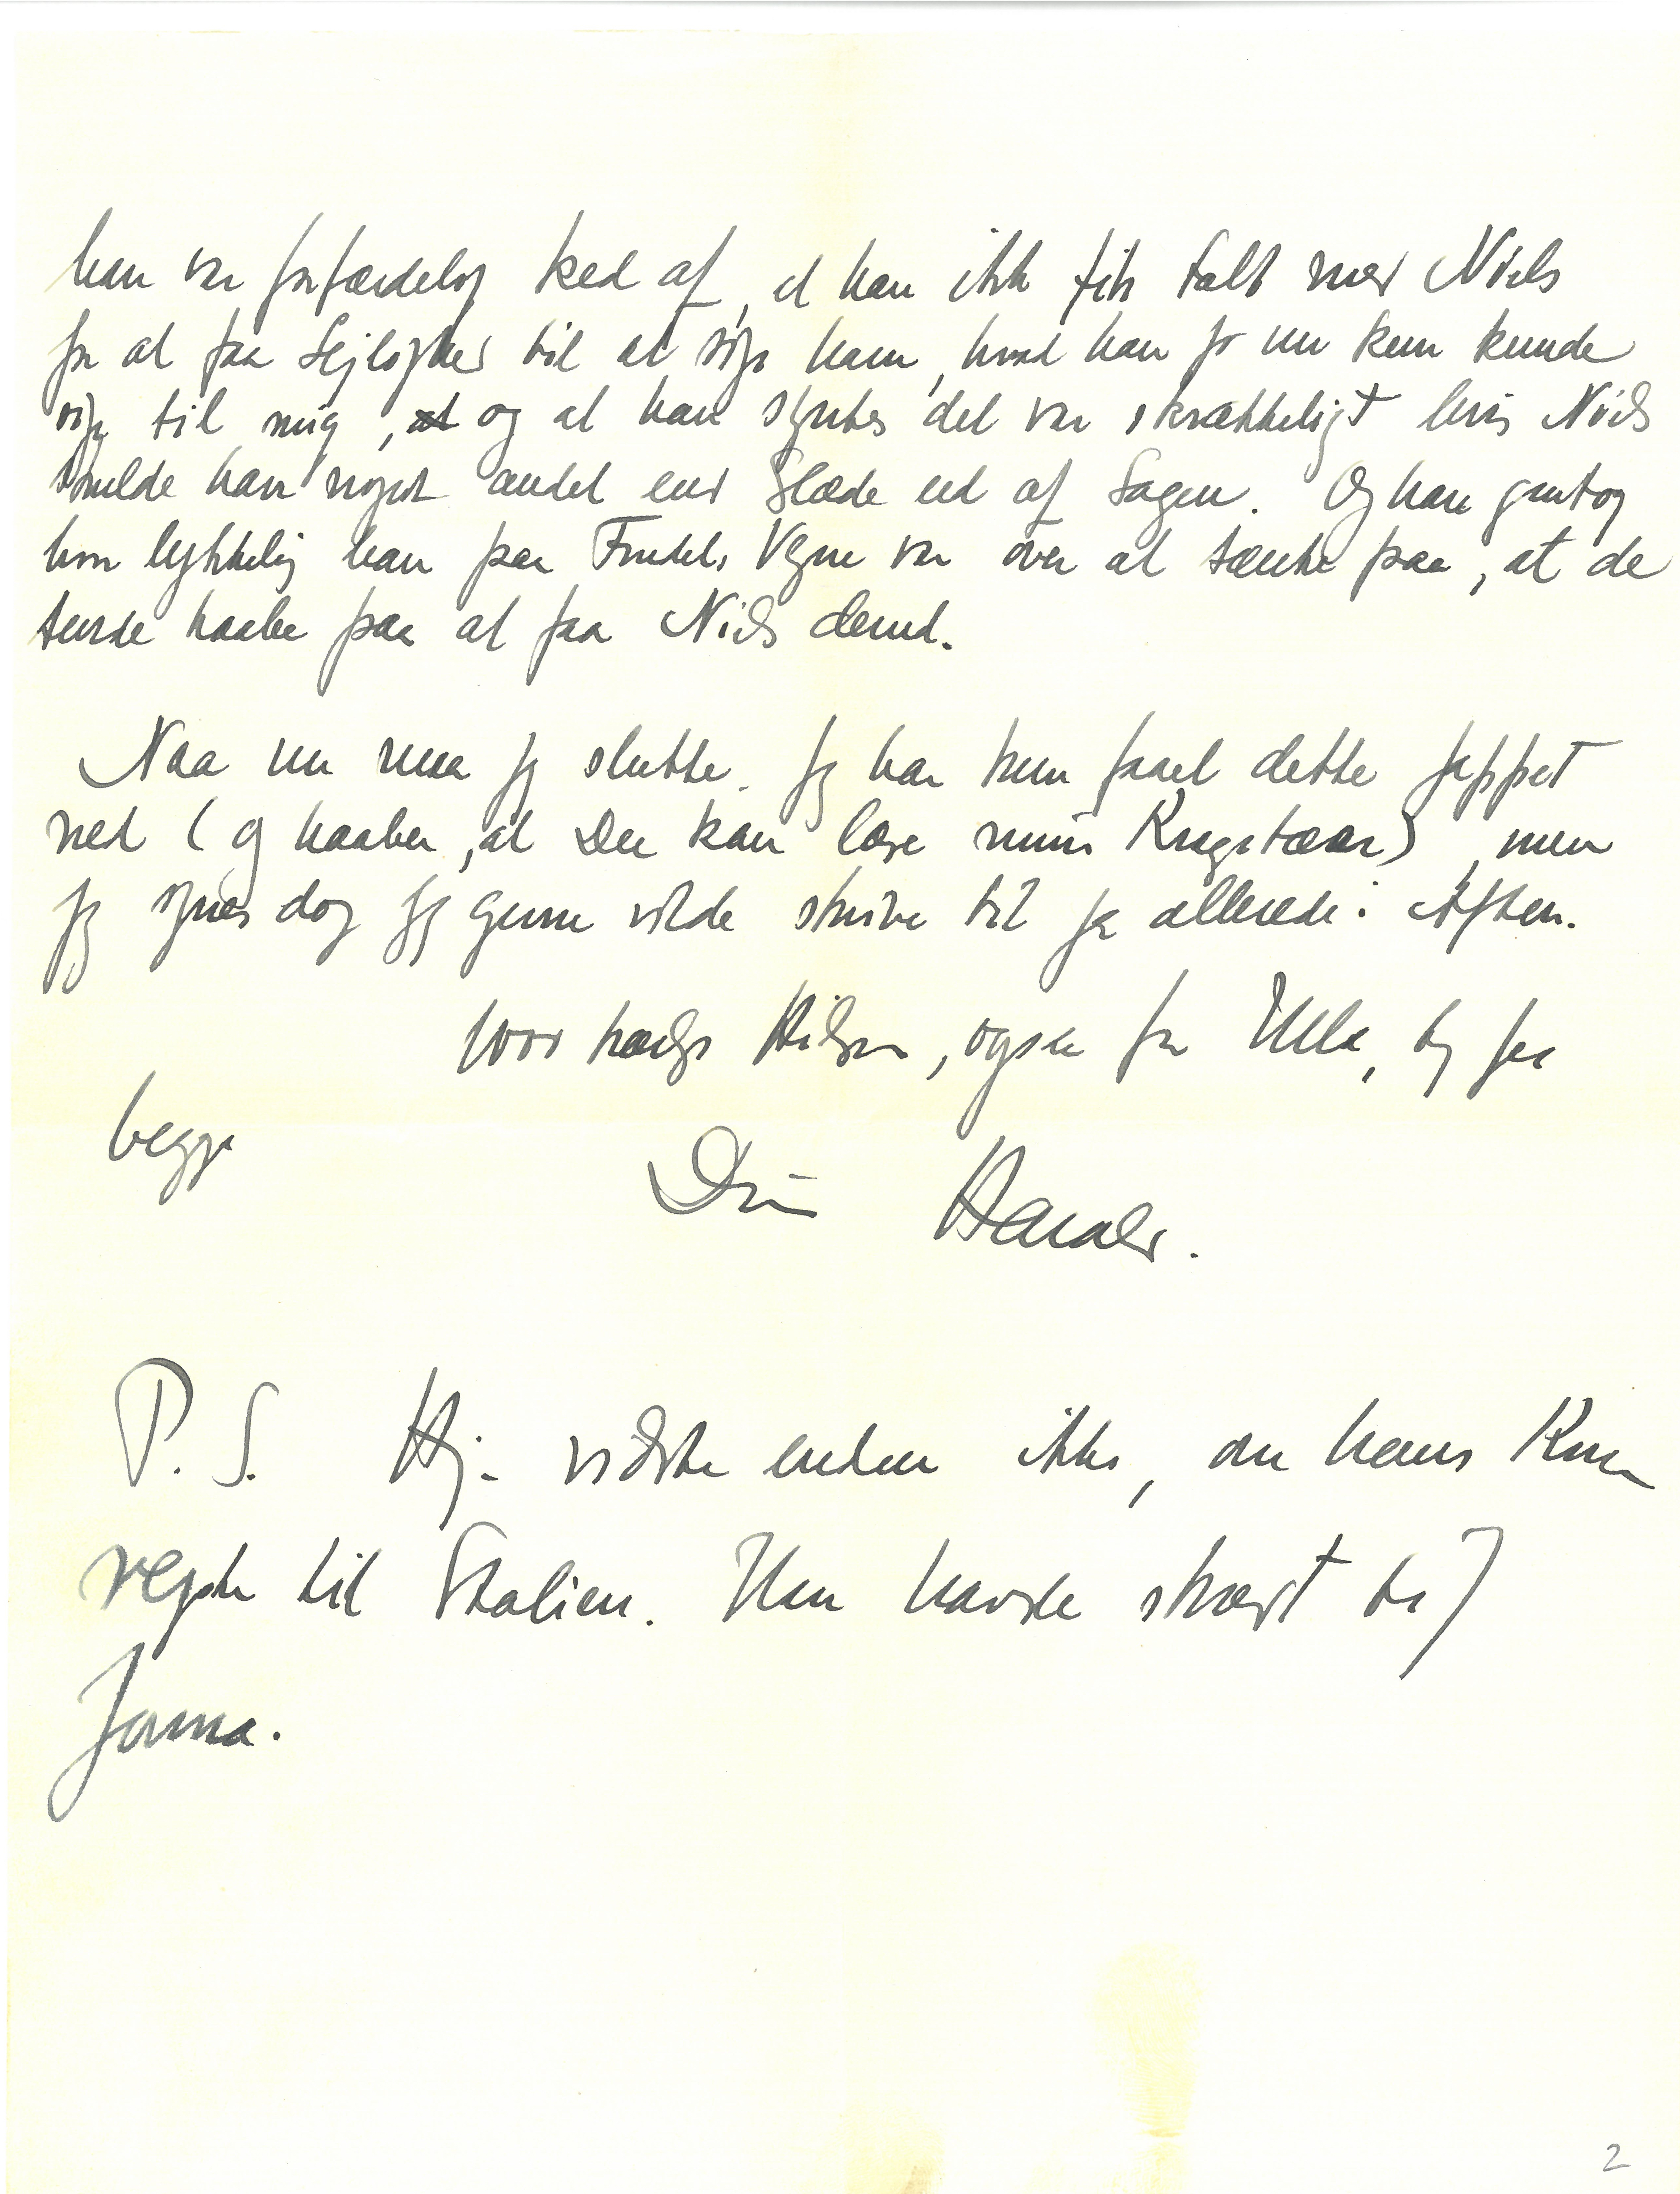 han var forfærdelig ked af, at han ikke fik talt med Niels
for at faa Lejlighed til at sige ham, hvad han jo nu kun kunde
sige til mig, at og at han syntes det var skrækkeligt hvis Niels
skulde have noget andet end Glæde ud af Sagen. Og han gentog
hvor lykkelig han paa Vegne var over at tænke paa, at de
turde haabe paa at faa Niels derud.
Naa nu maa jeg slutte. Jeg har kun faaet dette jappet
ned (og haaber, at Du kan læse mine Kragetæer), men
jeg synes dog jeg gerne vilde skrive til Jer allerede i Aften.
1000 kærlige Hilsner, ogsaa fra Ulla, til Jer
begge
Din Harald.
P.S. Hj. vidste endnu ikke, om hans Kone
rejste til Italien. Hun havde skrevet til
Jerma.
2